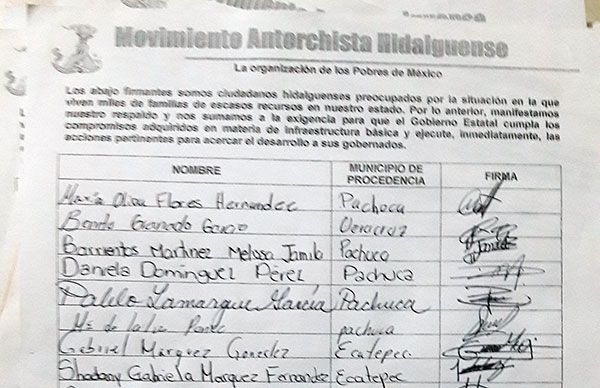 Movimiento Antorchista Hidalguense
La organización de los Pobres de México
Los abajo firmantes somos ciudadanos hidalguenses preocupados por la situación en la que
viven miles de familias de escasos recursos en nuestro estado. Por lo anterior, manifestamos
nuestro respaldo y nos sumamos a la exigencia para que el Gobierno Estatal cumpla los
compromisos adquiridos en materia de infraestructura básica y ejecute, inmediatamente, las
acciones pertinentes para acercar el desarrollo a sus gobernados.
NOMBRE MUNICIPIO DE PROCEDENCIA FIRMA
María Oliva Flores Hernandez Pachuca
Granado Veracruz
Barrientos Martinez Melissa Pachuca
Daniela Dominguez Pérez Pachuca
Pablo Lamarque García Pachuca
Ma de la Luz Ponce pachuca
Gabriel Marquez Gonzalez Ecatepec
Gabriela Marquez Fernandez Ecatepec